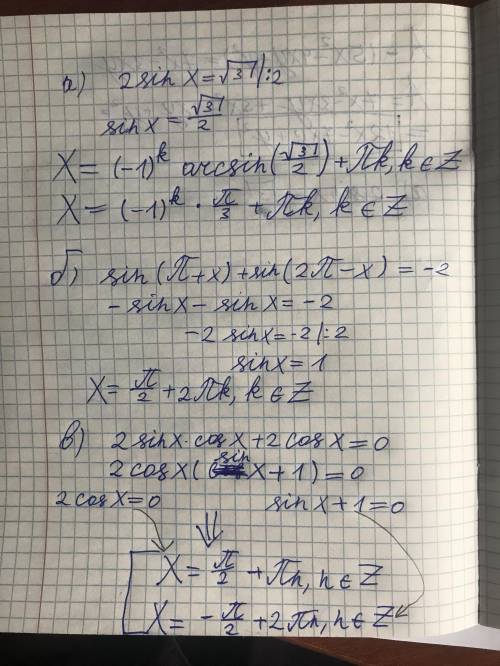 а) 2sin x = √3 |:2
sin x = √3/2
X = (-1)^k arcsin(√3/2) + πk, k ∈ Z
X = (-1)^k · π/3 + πk, k ∈ Z
б) sin(π+x) + sin(2π-x) = -2
-sin x - sin x = -2
-2 sin x = -2 |:2
sin x = 1
X = π/2 + 2πk, k ∈ Z
в) 2 sin x · cos x + 2 cos x = 0
2 cos x (sin x + 1) = 0
2 cos x = 0 sin x + 1 = 0
X = π/2 + πn, n ∈ Z
X = -π/2 + 2πn, n ∈ Z